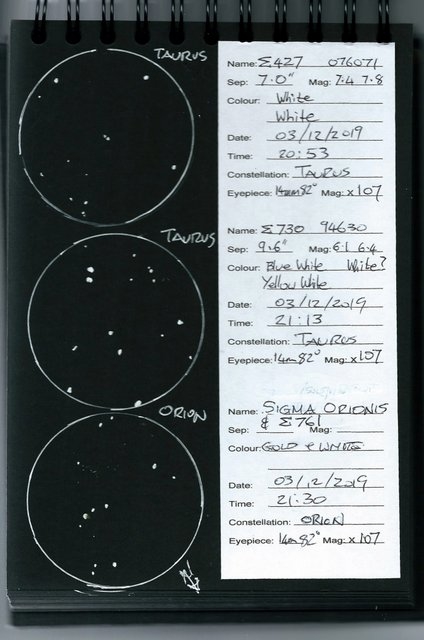 TAURUS
Name: Σ427 076071
Sep: 7.0" Mag: 7.4 7.8
Colour: White
White
Date: 03/12/2019
Time: 20:53
Constellation: TAURUS
Eyepiece: 14mm 82° Mag: x 107
TAURUS
Name: Σ730 94630
Sep: 9.6" Mag: 6.1 6.4
Colour: Blue White White?
Yellow White
Date: 03/12/2019
Time: 21:13
Constellation: TAURUS
Eyepiece: 14mm 82° Mag: x 107
ORION
Name: SIGMA ORIONIS
& Σ761
Sep: Mag:
Colour: GOLD & WHITE
Date: 03/12/2019
Time: 21:30
Constellation: ORION
Eyepiece: 14mm 82° Mag: x 107